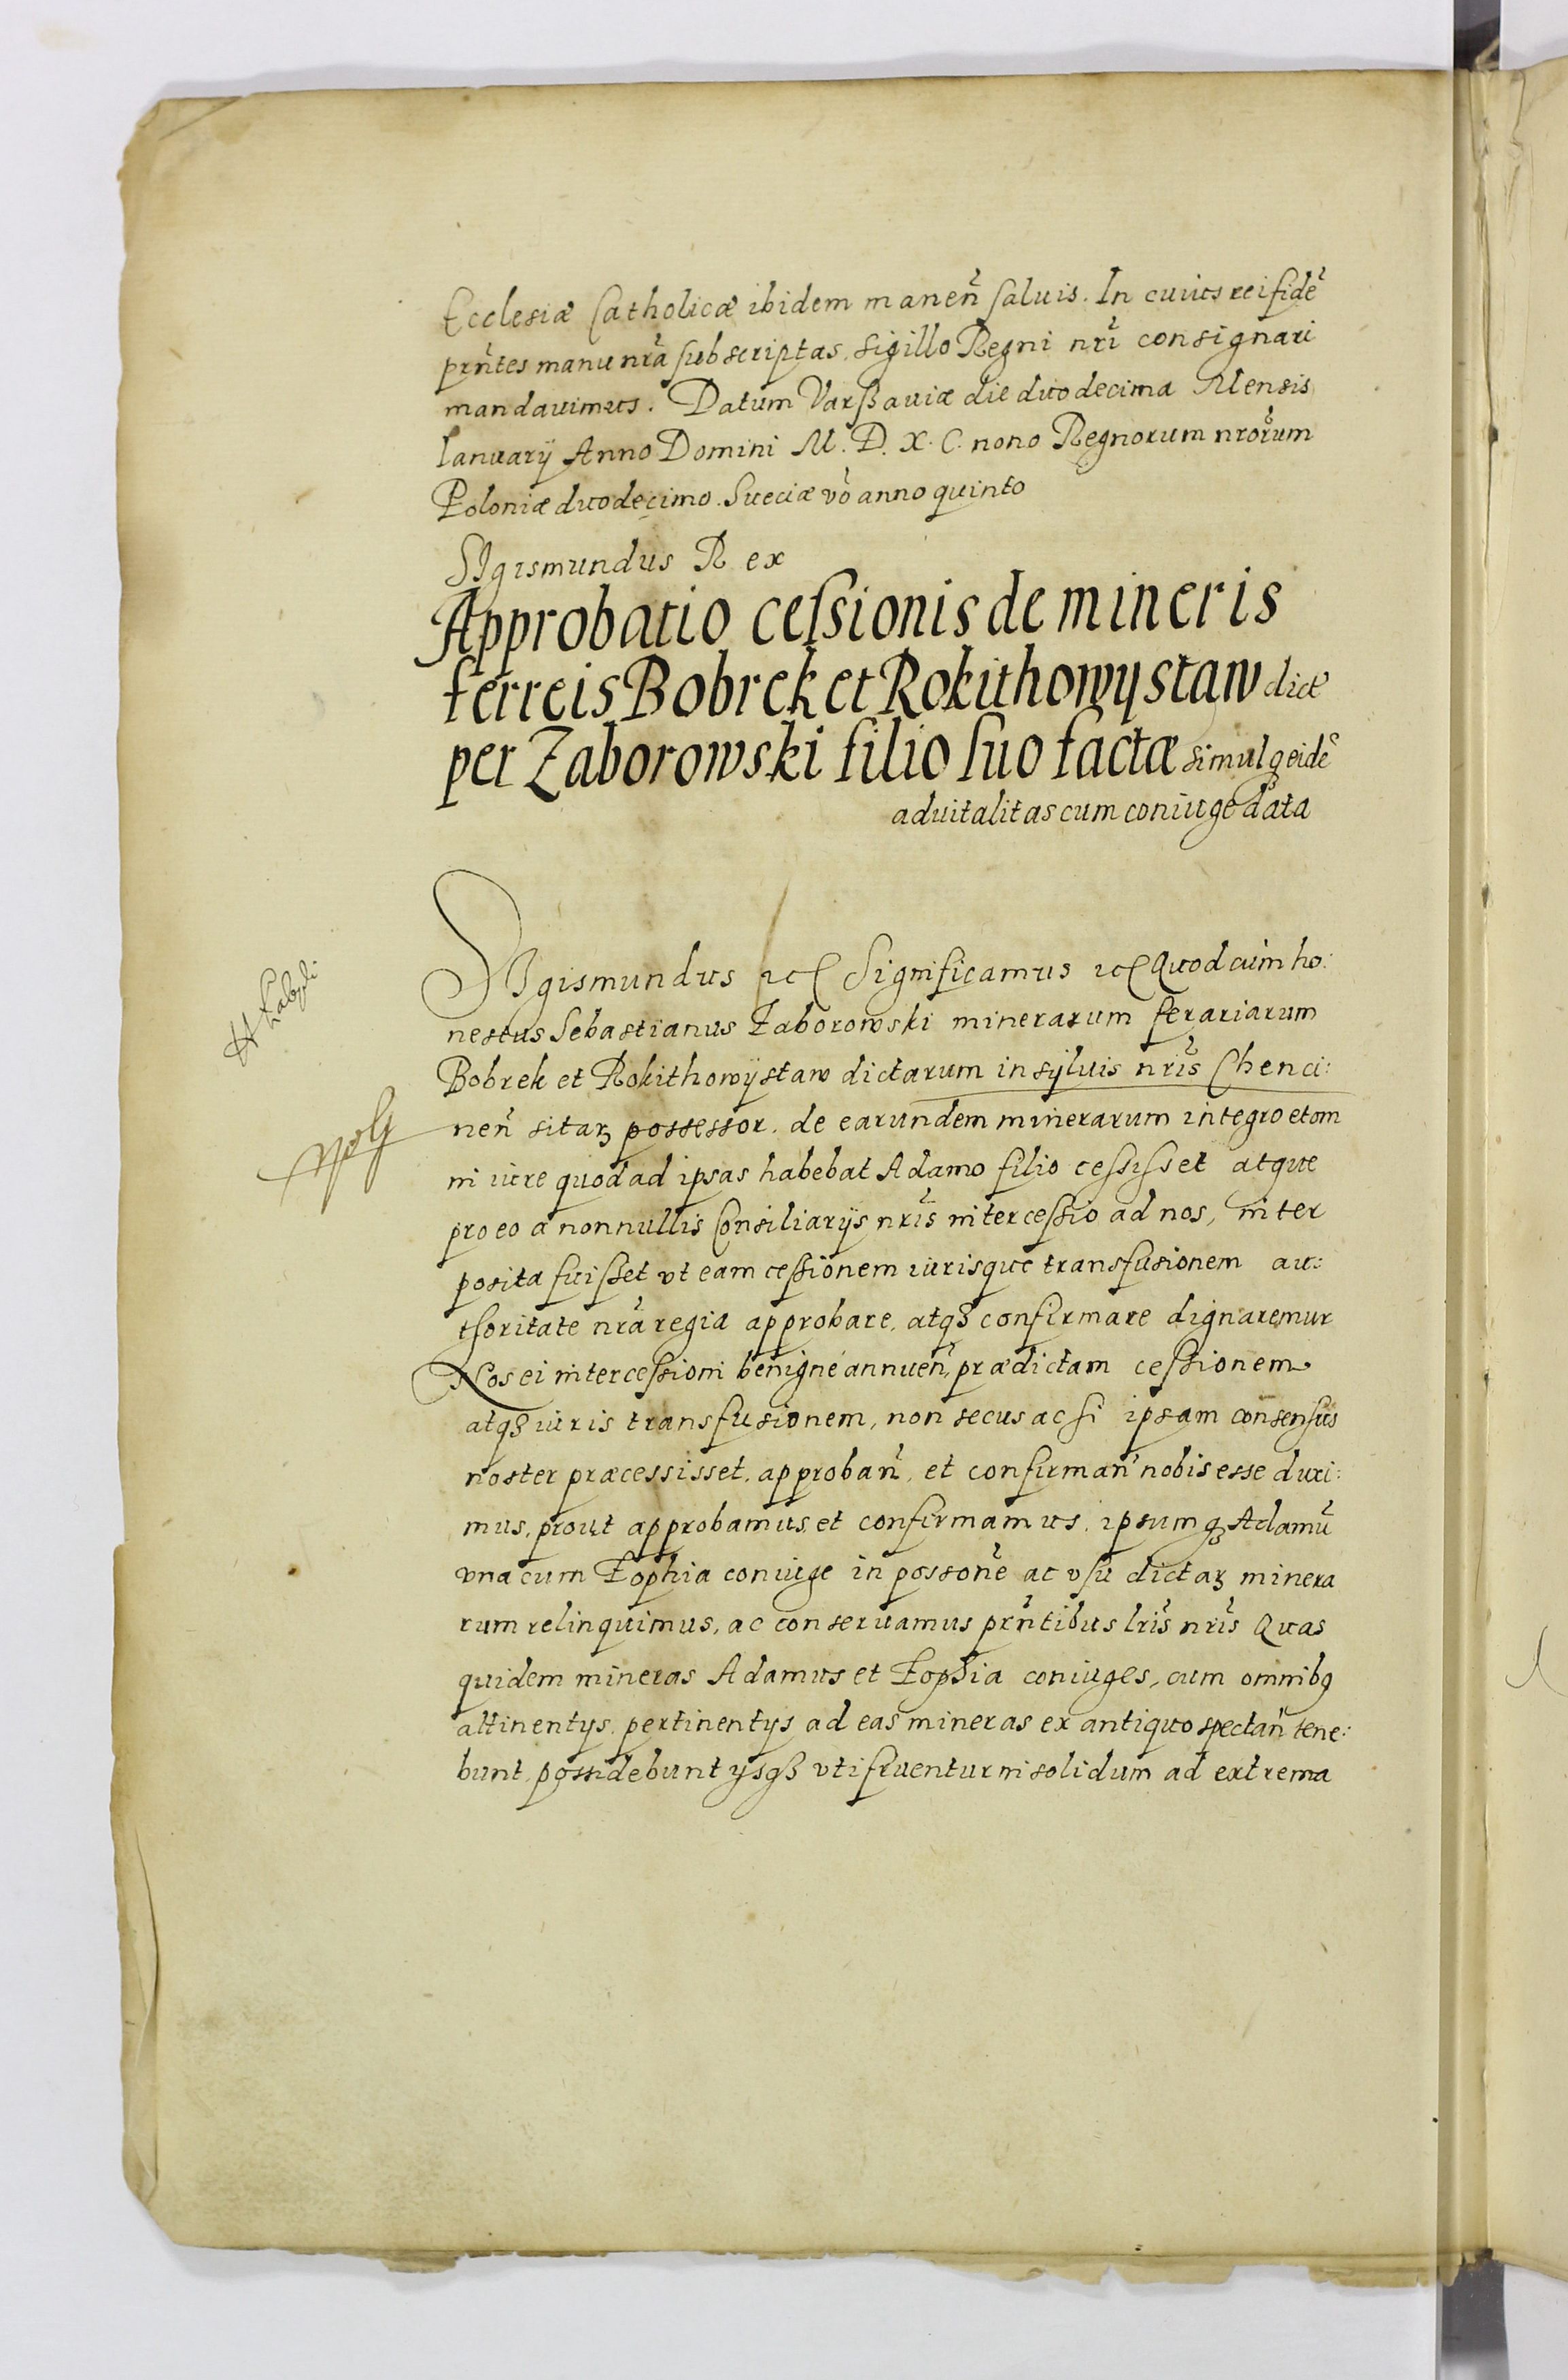 Ecclesiæ Catholicæ ibidem manen̄ saluis. In cuius rei fidē
prn̄tes manu nr̄a subscriptas, sigillo Regni nr̄i consignari
mandauimus. Datum Varssauiæ die duodecima Mensis
Ianuarÿ Anno Domini M. D. X. C. nono Regnorum nror̄um
Poloniæ duodecimo. Sueciæ vō anno quinto
SIgismundus Rex
Approbatio cessionis de mineris
ferreis Bobrek et Rokithowÿ staw dict
per Zaborowski filio suo factæ simulq eidē
aduitalitas cum coniuge data
SIgismundus etc Significamus etc Quod cum ho:
nestus Sebastianus Zaborowski minerarum ferariarum
Bobrek et Rokithowÿ staw dictarum in syluis nr̄is Chenci:
nen̄ sitaꝝ possessor. de earundem minerarum integro et om
ni iure quod ad ipsas habebat Adamo filio cessisset atque
pro eo a nonnullis Consiliarÿs nr̄is intercessio ad nos, inter
posita fuisset vt eam cessionem iurisque transfusionem au:
thoritate nr̄a regia approbare, atqꝫ confirmare dignaremur
Nos ei intercessioni benigné annuen̄, prædictam cessionem
atqꝫ iuris transfusionem, non secus ac si ipsam consensus
noster præcessisset, approban̄, et confirman̄ nobis esse duxi:
mus, prout approbamus et confirmamus, ipsumqꝫ Adamū
vna cum Zophia coniuge in possonē ac vsu dictaꝝ minera
rum relinquimus, ac conseruamus prn̄tibus lr̄is nr̄is Quas
quidem mineras Adamus et Zophia coniuges, cum omnibꝰ
attinentÿs, pertinentÿs ad eas mineras ex antiquo spectan̄ tene:
bunt, possidebunt ÿsqꝫ vti fruentur in solidum ad extrema